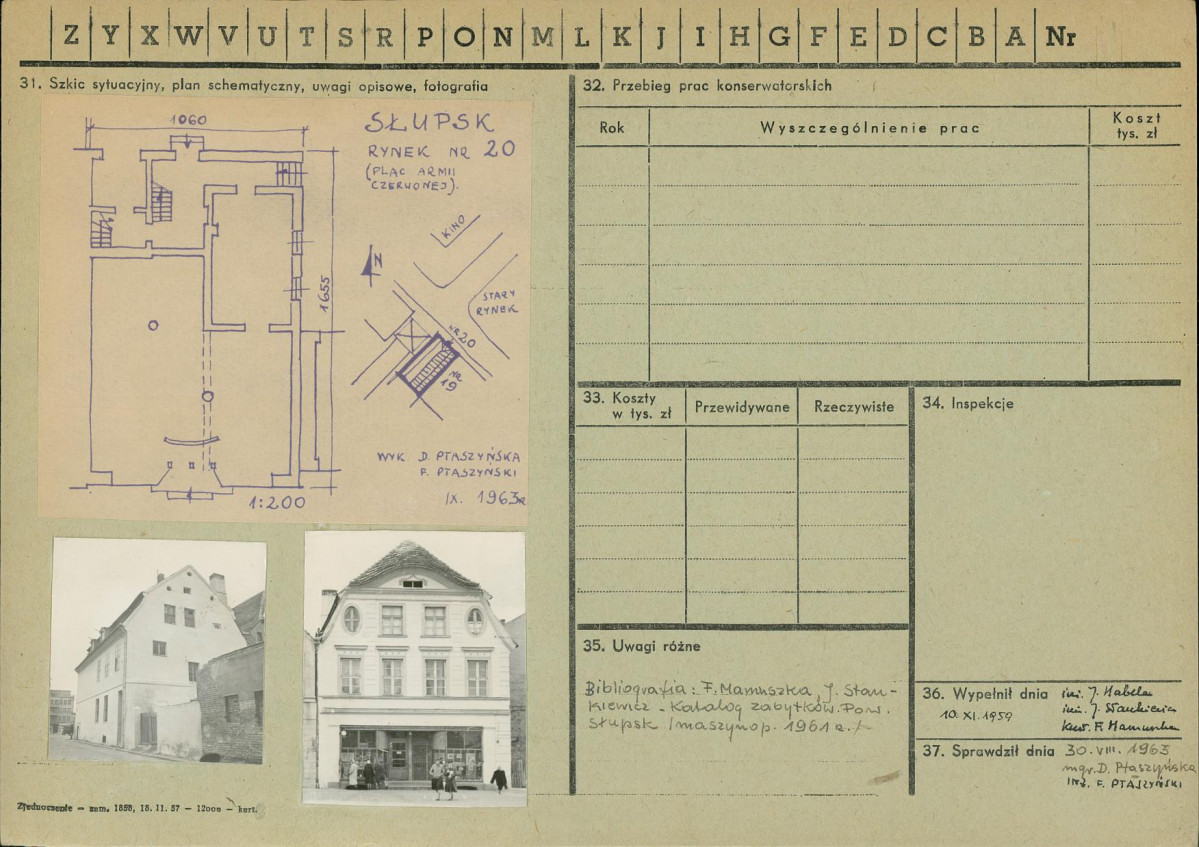 Z Y X W V U T S R P O N M L K J I H G F E D C B A Nr
31. Szkic sytuacyjny, plan schematyczny, uwagi opisowe, fotografia
1060
SŁUPSK
RYNEK NR 20
(PLAC ARMII
CZERWONEJ).
KINO
N
1655
STARY
RYNEK
NR 20
NR 19
WYK. D. PTASZYŃSKA
F. PTASZYŃSKI
IX. 1963 R
1:200
Zjednoczenie — zam. 1858, 18. 11. 57 — 12000 — kart.
32. Przebieg prac konserwatorskich
Rok
Wyszczególnienie prac
Koszt
tys. zł
33. Koszty
w tys. zł
Przewidywane
Rzeczywiste
34. Inspekcje
35. Uwagi różne
Bibliografia: F. Mamuszka, J. Stan-
kiewicz - Katalog zabytków. Pow.
Słupsk /maszynop. 1961 r./
36. Wypełnił dnia
10. XI. 1959
inż. J. Habela
inż. J. Stankiewicz
kust. F. Mamuszka
37. Sprawdził dnia 30. VIII. 1963
mgr. D. Ptaszyńska
INŻ. F. PTASZYŃSKI